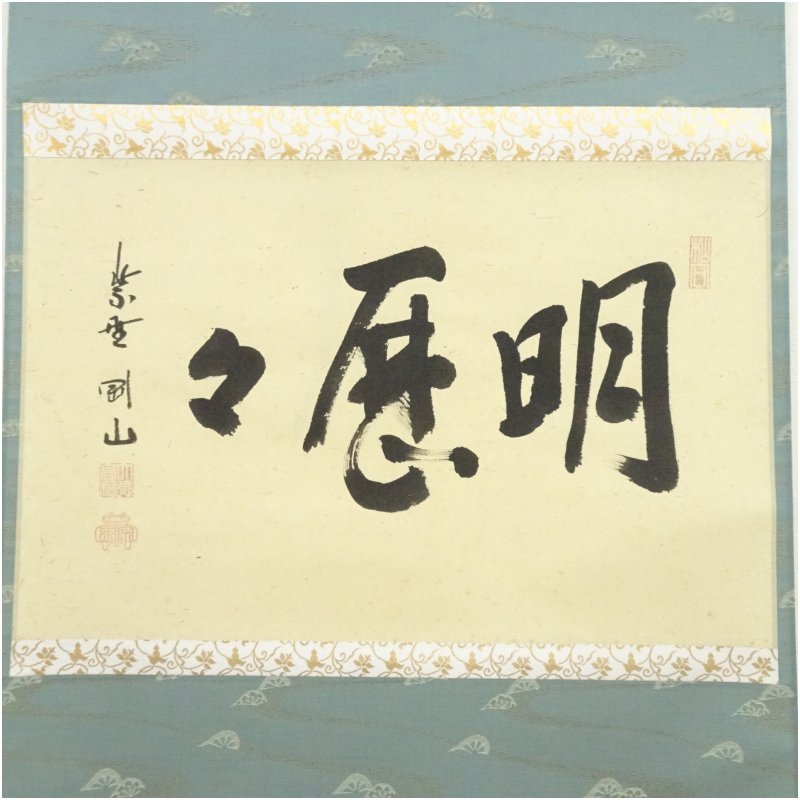 明歴々
紫野 剛山